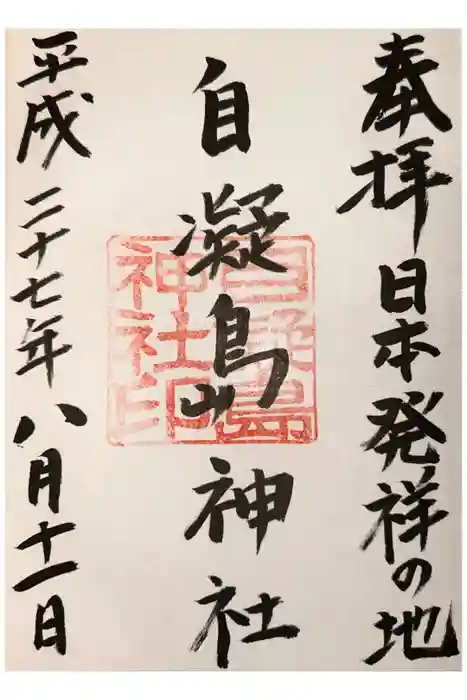 奉拝 日本発祥の地
自凝島神社
自凝島
神社印
平成二十七年八月十一日